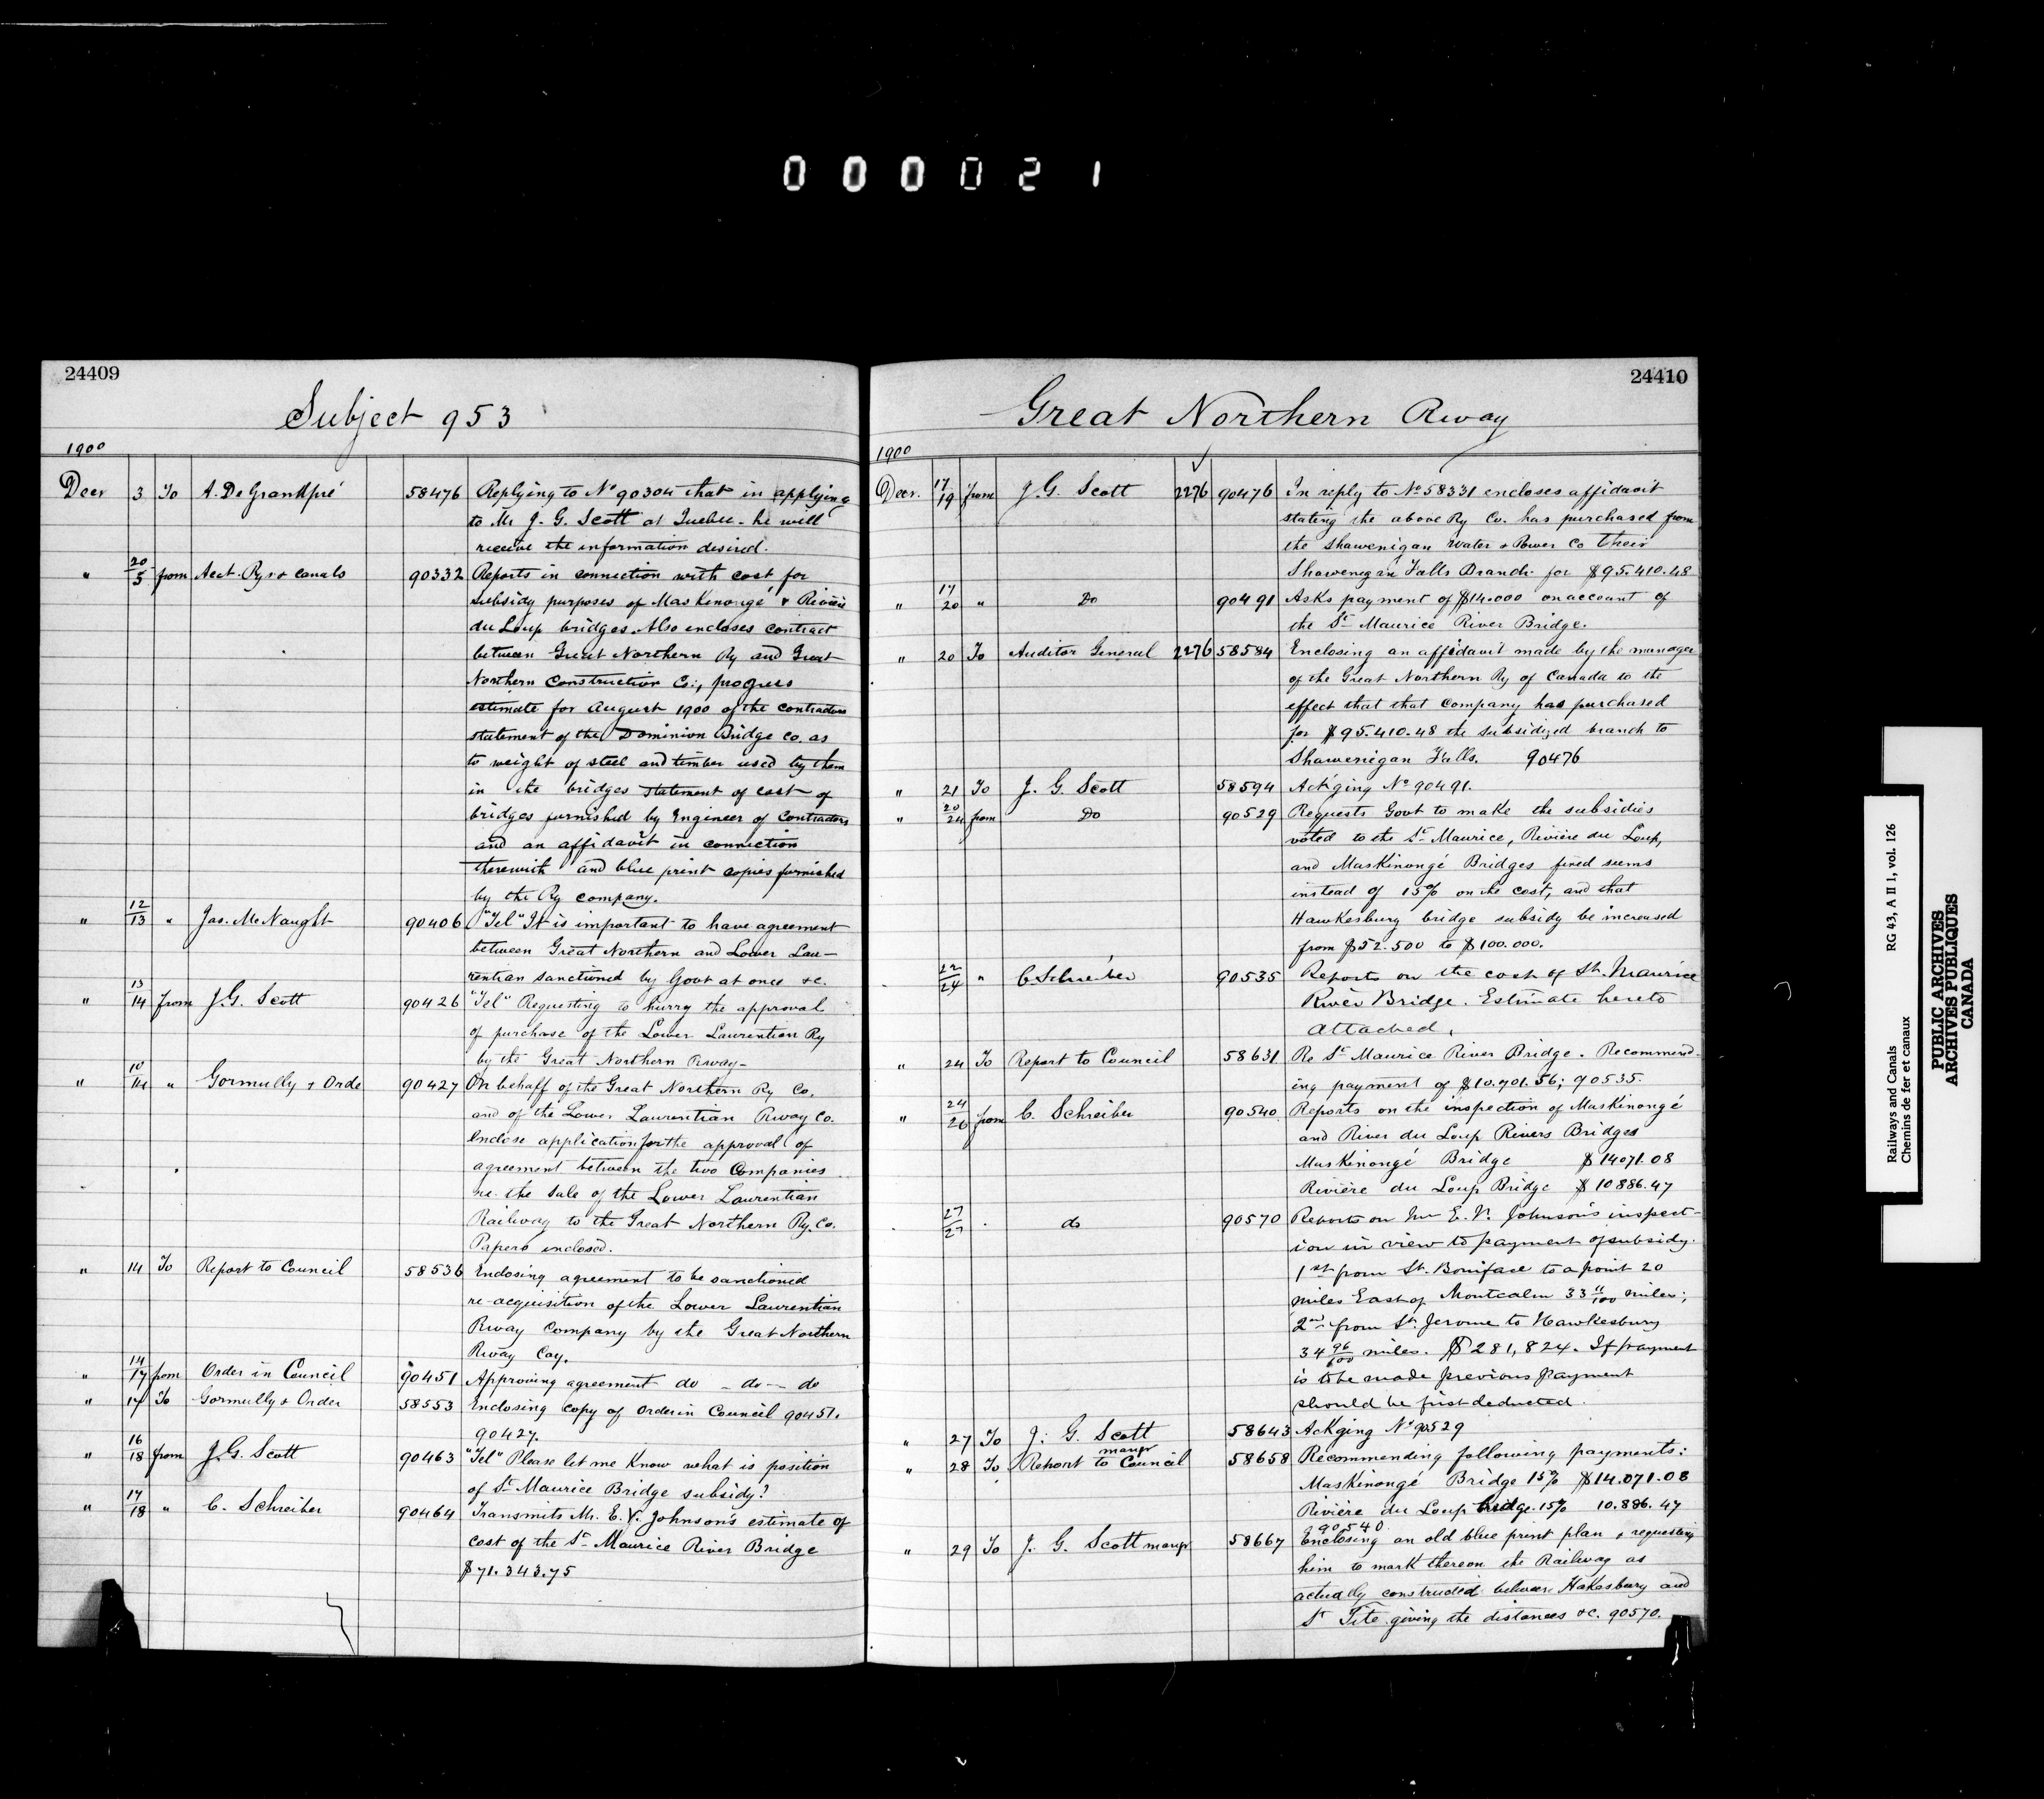 000021
24409
Subject 953
1900
Decr 3 To A. De Grandpré 58476 Replying to No 90304 that in applying
to Mr J. G. Scott at Quebec - he will
receive the information desired.
" 20/5 from Acct. Rys & Canals 90332 Reports in connection with cost for
subsidy purposes of Maskinongé & Rivière
du Loup bridges. Also encloses contract
between Great Northern Ry and Great
Northern Construction Co:, progress
estimate for August 1900 of the contractors
statement of the Dominion Bridge Co. as
to weight of steel and timber used by them
in the bridges statement of cost of
bridges furnished by Engineer of Contractors
and an affidavit in connection
therewith and blue print copies furnished
by the Ry company.
" 12/13 " Jas. McNaught 90406 "Tel" It is important to have agreement
between Great Northern and Lower Lau-
rentian sanctioned by Govt at once &c.
" 13/14 from J.G. Scott 90426 "Tel" Requesting to hurry the approval
of purchase of the Lower Laurentian Ry
by the Great Northern Rway-
" 10/14 " Gormully & Orde 90427 On behalf of the Great Northern Ry Co.
and of the Lower Laurentian Rway Co.
enclose application for the approval of
agreement between the two Companies
re. the sale of the Lower Laurentian
Railway to the Great Northern Ry. Co.
Papers inclosed.
" 14 To Report to Council 58536 Enclosing agreement to be sanctioned
re-acquisition of the Lower Laurentian
Rway Company by the Great Northern
Rway Coy.
" 14/17 from Order in Council 90451 Approving agreement do - do - do
" 17 To Gormully & Order 58553 Enclosing copy of Order in Council 90451.
90427.
" 16/18 from J.G. Scott 90463 "Tel" Please let me know what is position
of St Maurice Bridge subsidy?
" 17/18 " C. Schreiber 90464 Transmits Mr. E. V. Johnson's estimate of
cost of the St Maurice River Bridge
$71.343.75
24410
Great Northern Rway
1900
Decr. 17/19 from J.G. Scott 2276 90476 In reply to No 58331 encloses affidavit
stating the above Ry Co. has purchased from
the Shawenigan Water & Power Co their
Shawenegan Falls Branch for $95.410.48
" 17/20 " Do 90491 Asks payment of $14.000 on account of
the St Maurice River Bridge.
" 20 To Auditor General 2276 58584 Enclosing an affidavit made by the manager
of the Great Northern Ry of Canada to the
effect that that Company has purchased
for $95.410.48 the subsidized branch to
Shawenegan Falls. 90476
" 21 To J. G. Scott 58594 Ackging No 90491.
" 20/24 from Do 90529 Requests Govt to make the subsidies
voted to the St Maurice, Rivière du Loup,
and Maskinongé Bridges fixed seems
instead of 15% on the cost, and that
Hawkesbury bridge subsidy be increased
from $52.500 to $100.000.
22/24 " C. Schreiber 90535 Reports on the cost of St. Maurice
River Bridge. Estimate hereto
attached.
" 24 To Report to Council 58631 Re St Maurice River Bridge. Recommend-
ing payment of $10.701.56; 90535.
" 24/26 from C. Schreiber 90540 Reports on the inspection of Maskinongé
and River du Loup Rivers Bridges
Maskinongé Bridge $14071.08
Rivière du Loup Bridge $10886.47
27/27 do 90570 Reports on Mr E. V. Johnson's inspect-
ion in view to payment of subsidy.
1st from St. Boniface to a point 20
miles East of Montcalm 33 11/100 miles;
2nd from St. Jerome to Hawkesbury
34 96/100 miles. $281,824. If payment
is to be made previous payment
should be first deducted.
" 27 To J. G. Scott 58643 Ackging No 90529
mangr
" 28 To Report to Council 58658 Recommending following payments:
Maskinongé Bridge 15% $14.071.08
Rivière du Loup bridge. 15% 10.886.47
90540
" 29 To J. G. Scott mangr 58667 Enclosing an old blue print plan & requesting
him to mark thereon the Railway as
actually constructed between Hakesbury and
St Tite giving the distances &c. 90570.
Railways and Canals RG 43, A II 1, vol. 126
Chemins de fer et canaux
PUBLIC ARCHIVES
ARCHIVES PUBLIQUES
CANADA